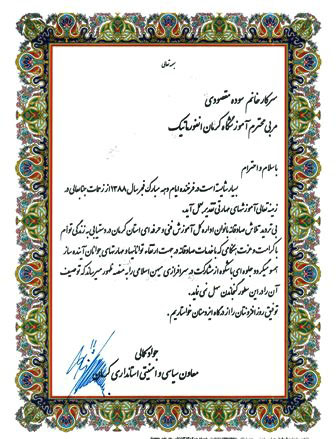 بسمه تعالی
سرکار خانم سوده مقصودی
مربی محترم آموزشگاه کرمان انفورماتیک
با سلام و احترام
بسیار شایسته است در فرخنده ایام دهه مبارک فجر سال ۱۳۸۸ از زحمات جنابعالی در
زمینه تعالی آموزشهای مهارتی تقدیر بعمل آید.
بی تردید تلاش صادقانه بانوان اداره کل آموزش فنی و حرفه ای استان کرمان در دستیابی به زندگی توأم
با کرامت و عزت هنگامی که با خدمات صادقانه در جهت ارتقاء توانائیها و مهارتهای جوانان آینده ساز
همسو میگردد جلوه ای باشکوه از مشارکت در سرافرازی میهن اسلامی را به منصه ظهور میرساند که توصیف
آن را در این سطور گنجاندن سهل نمی نماید.
توفیق روز افزونتان را از درگاه ایزد منان خواستاریم.
جواد کمالی
معاون سیاسی و امنیتی استانداری کرمان